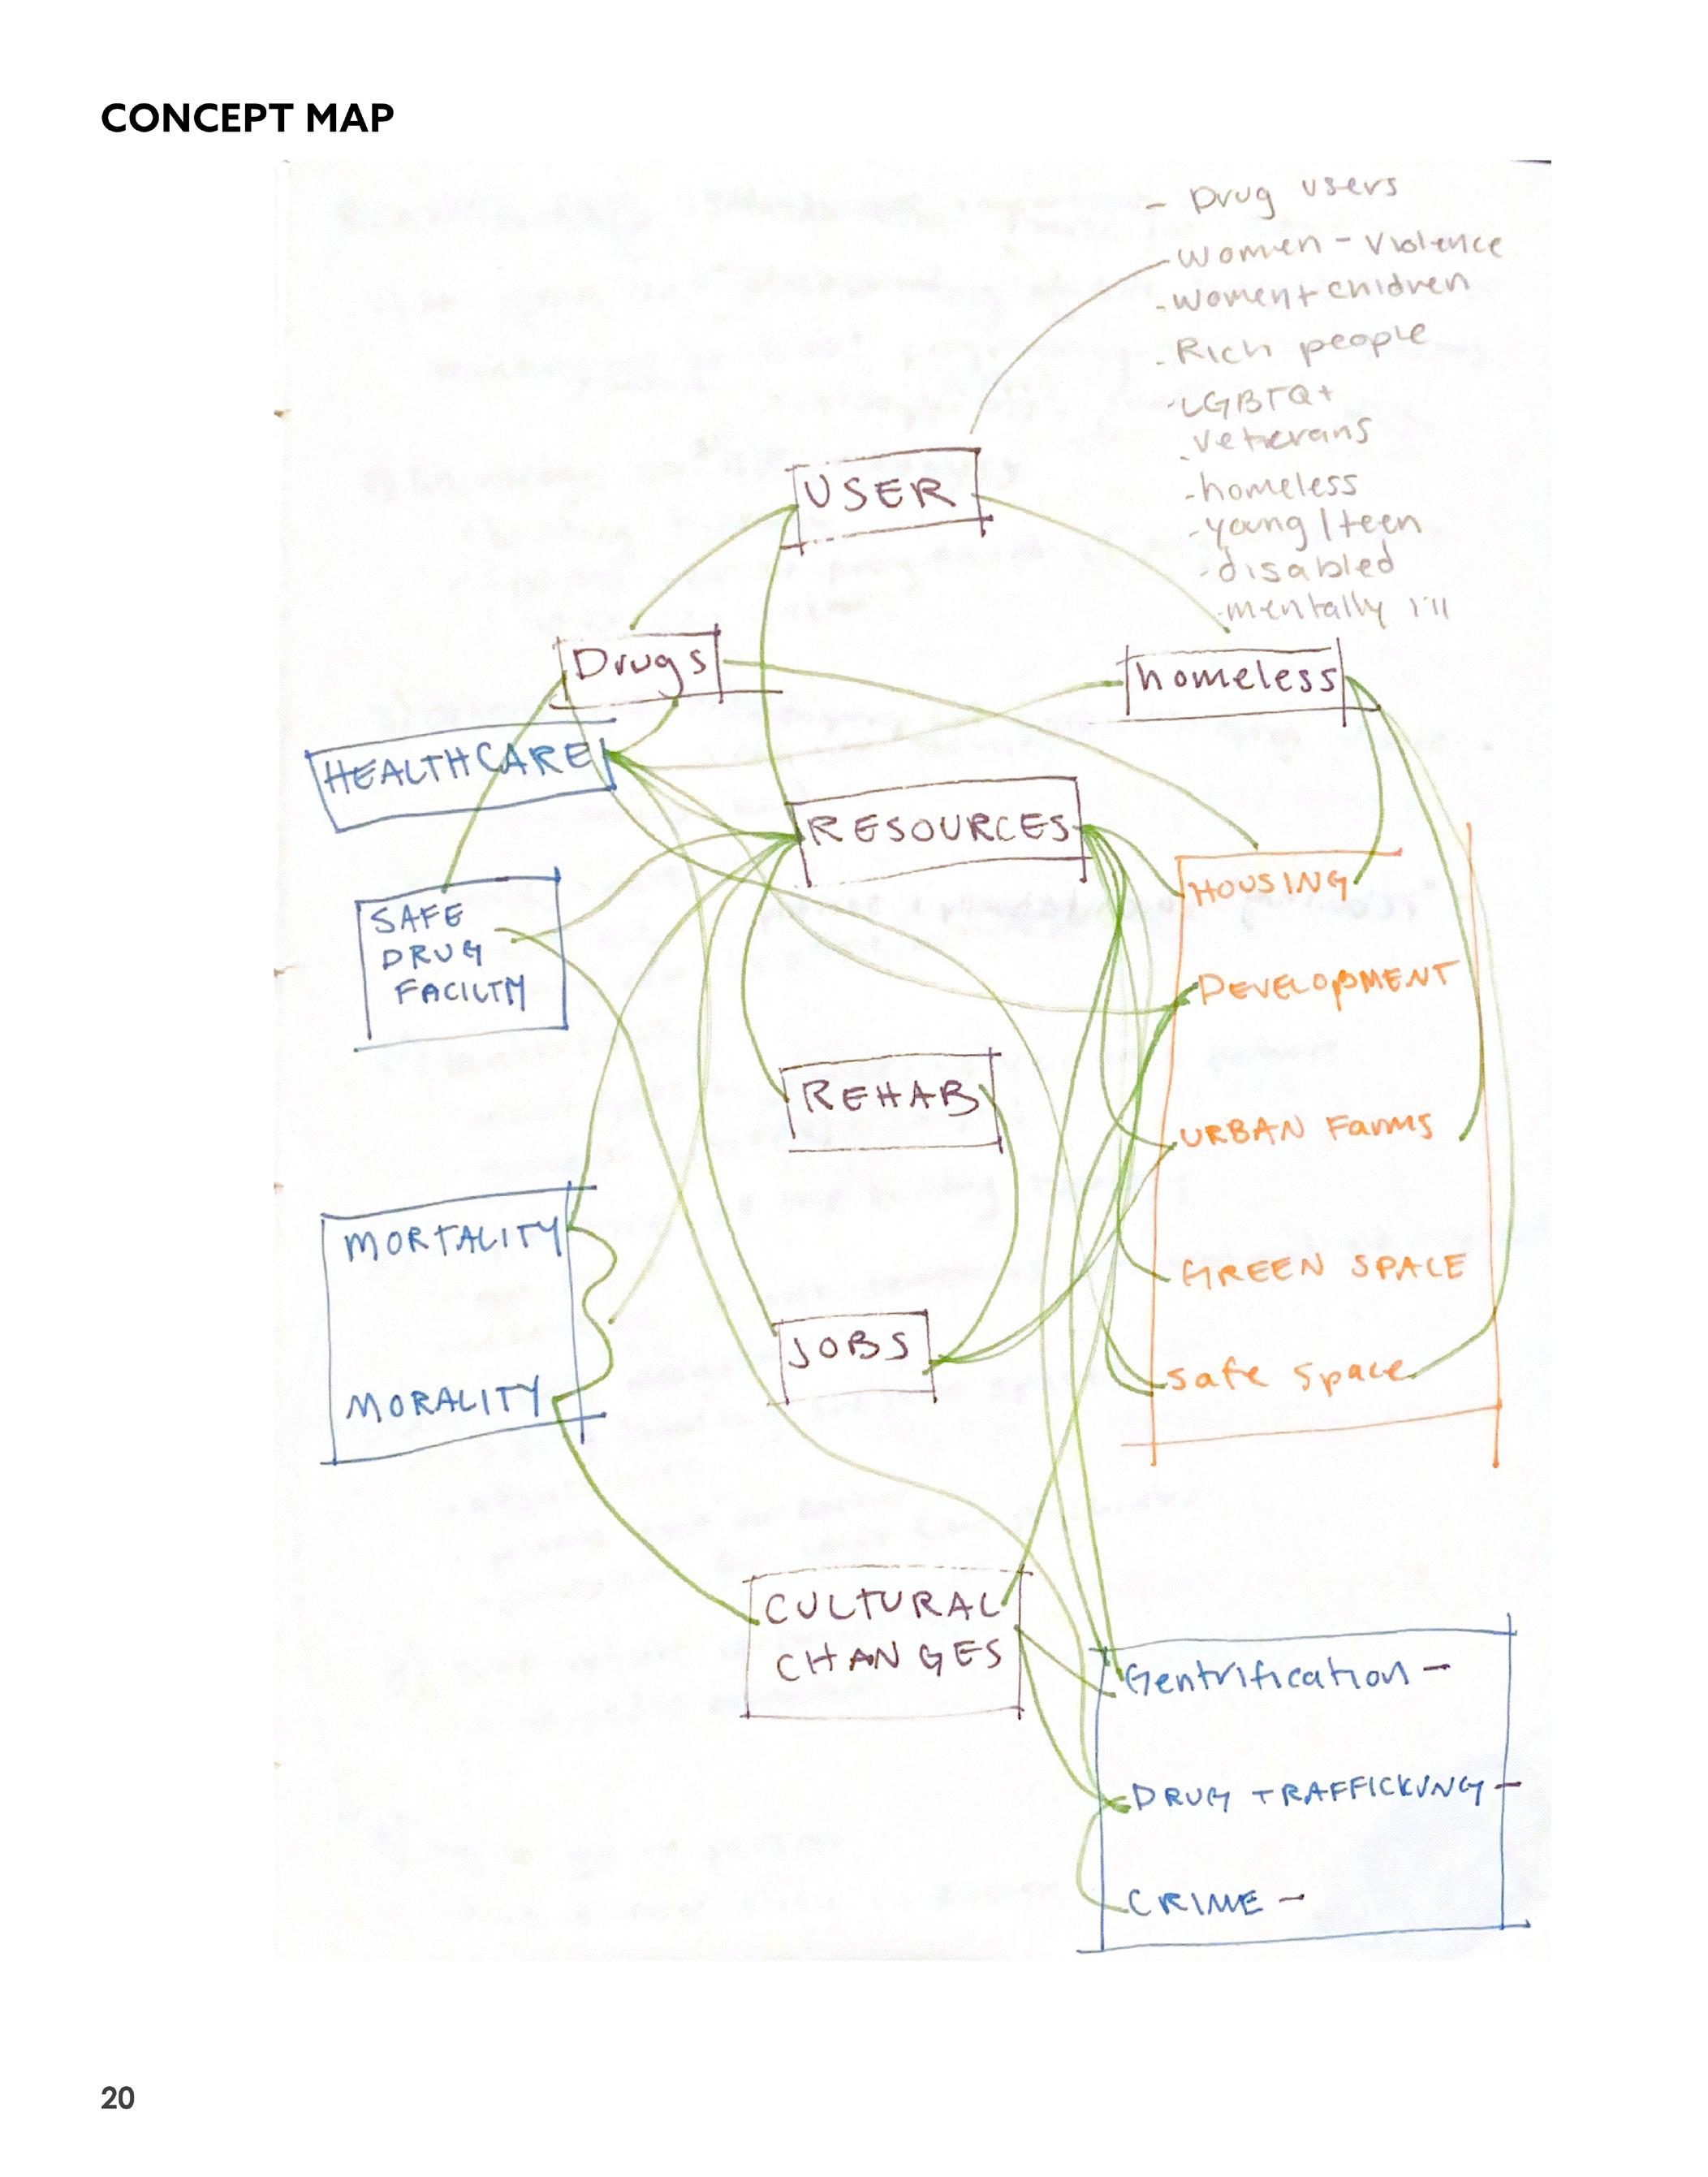 CONCEPT MAP
- Drug users
- women - violence
- women + children
- Rich people
- LGBTQ+
- veterans
- homeless
- young / teen
- disabled
- mentally ill
USER
Drugs
homeless
HEALTHCARE
RESOURCES
HOUSING
SAFE
DRUG
FACILTY
DEVELOPMENT
REHAB
URBAN Farms
MORTALITY
GREEN SPACE
JOBS
safe space
MORALITY
CULTURAL
CHANGES
Gentrification -
DRUG TRAFFICKING -
CRIME -
20